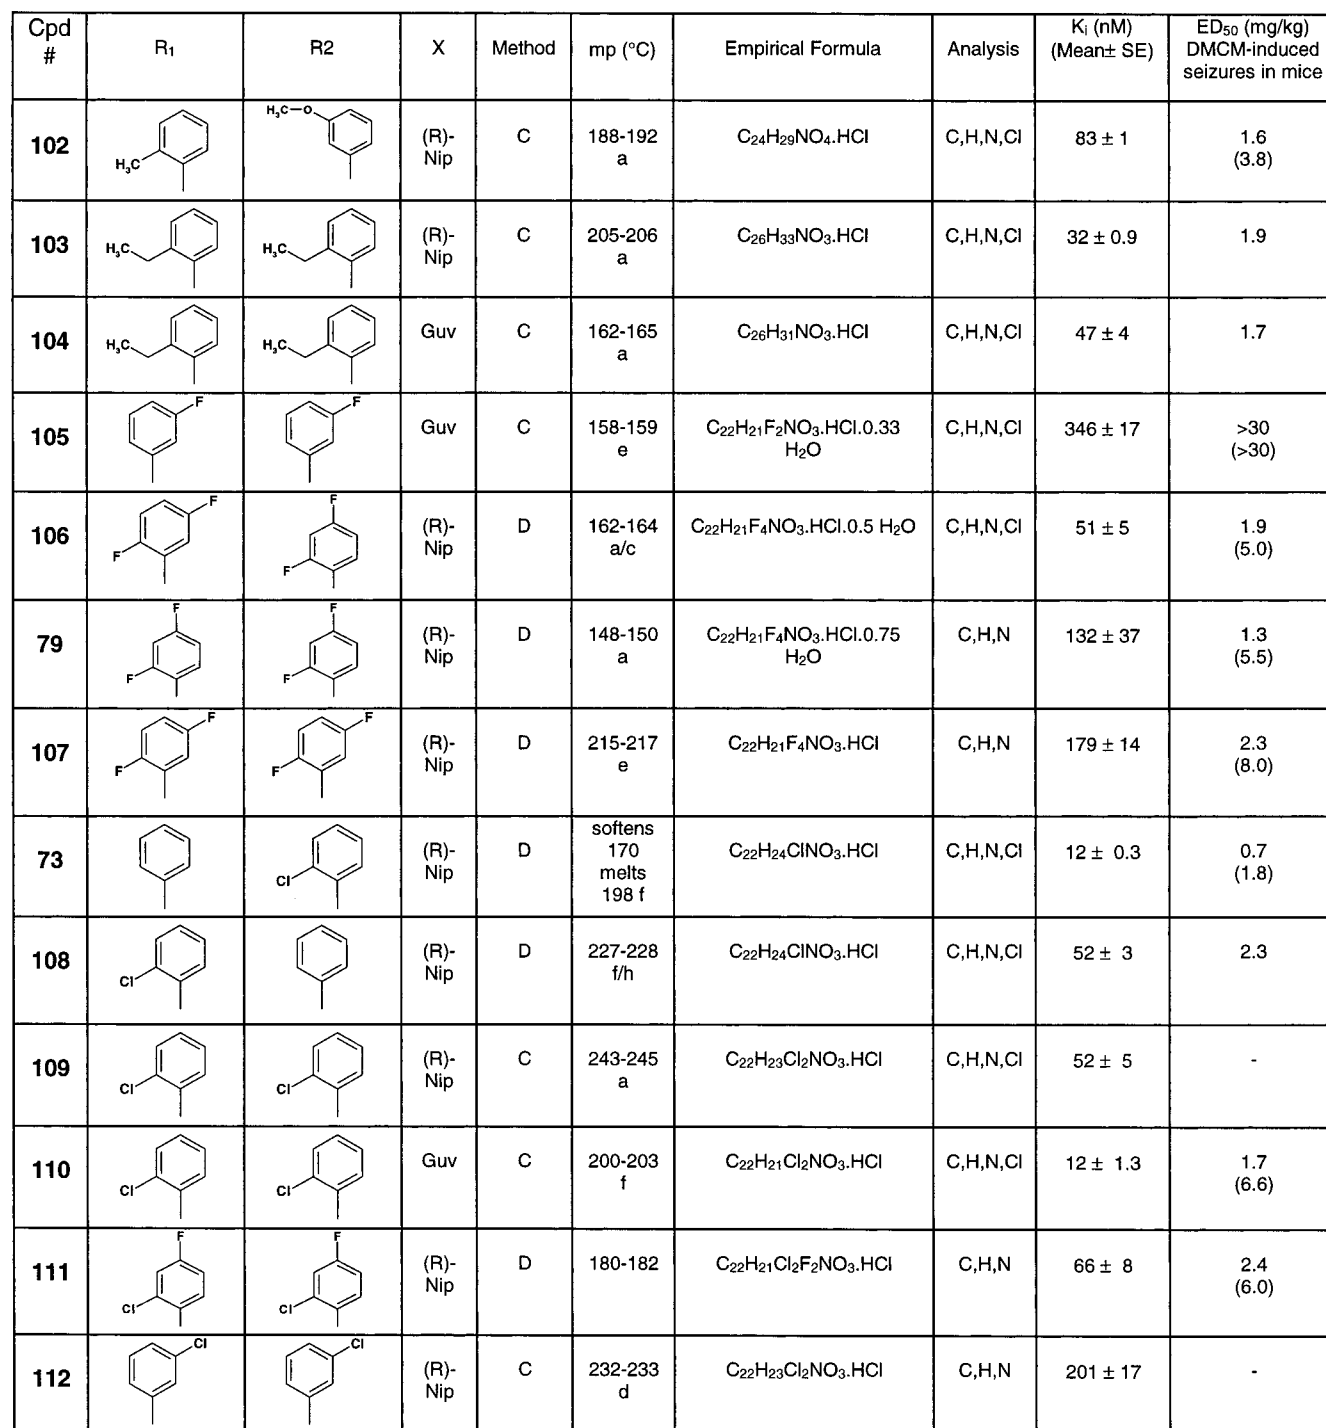 Cpd # R1 R2 X Method mp (°C) Empirical Formula Analysis Ki (nM) (Mean± SE) ED50 (mg/kg) DMCM-induced seizures in mice
102 H3C H3C–O (R)-Nip C 188-192 a C24H29NO4.HCl C,H,N,Cl 83 ± 1 1.6 (3.8)
103 H3C H3C (R)-Nip C 205-206 a C26H33NO3.HCl C,H,N,Cl 32 ± 0.9 1.9
104 H3C H3C Guv C 162-165 a C26H31NO3.HCl C,H,N,Cl 47 ± 4 1.7
105 F F Guv C 158-159 e C22H21F2NO3.HCl.0.33 H2O C,H,N,Cl 346 ± 17 >30 (>30)
106 F F F F (R)-Nip D 162-164 a/c C22H21F4NO3.HCl.0.5 H2O C,H,N,Cl 51 ± 5 1.9 (5.0)
79 F F F F (R)-Nip D 148-150 a C22H21F4NO3.HCl.0.75 H2O C,H,N 132 ± 37 1.3 (5.5)
107 F F F F (R)-Nip D 215-217 e C22H21F4NO3.HCl C,H,N 179 ± 14 2.3 (8.0)
73 Cl (R)-Nip D softens 170 melts 198 f C22H24ClNO3.HCl C,H,N,Cl 12 ± 0.3 0.7 (1.8)
108 Cl (R)-Nip D 227-228 f/h C22H24ClNO3.HCl C,H,N,Cl 52 ± 3 2.3
109 Cl Cl (R)-Nip C 243-245 a C22H23Cl2NO3.HCl C,H,N,Cl 52 ± 5 -
110 Cl Cl Guv C 200-203 f C22H21Cl2NO3.HCl C,H,N,Cl 12 ± 1.3 1.7 (6.6)
111 F Cl F Cl (R)-Nip D 180-182 C22H21Cl2F2NO3.HCl C,H,N 66 ± 8 2.4 (6.0)
112 Cl Cl (R)-Nip C 232-233 d C22H23Cl2NO3.HCl C,H,N 201 ± 17 -